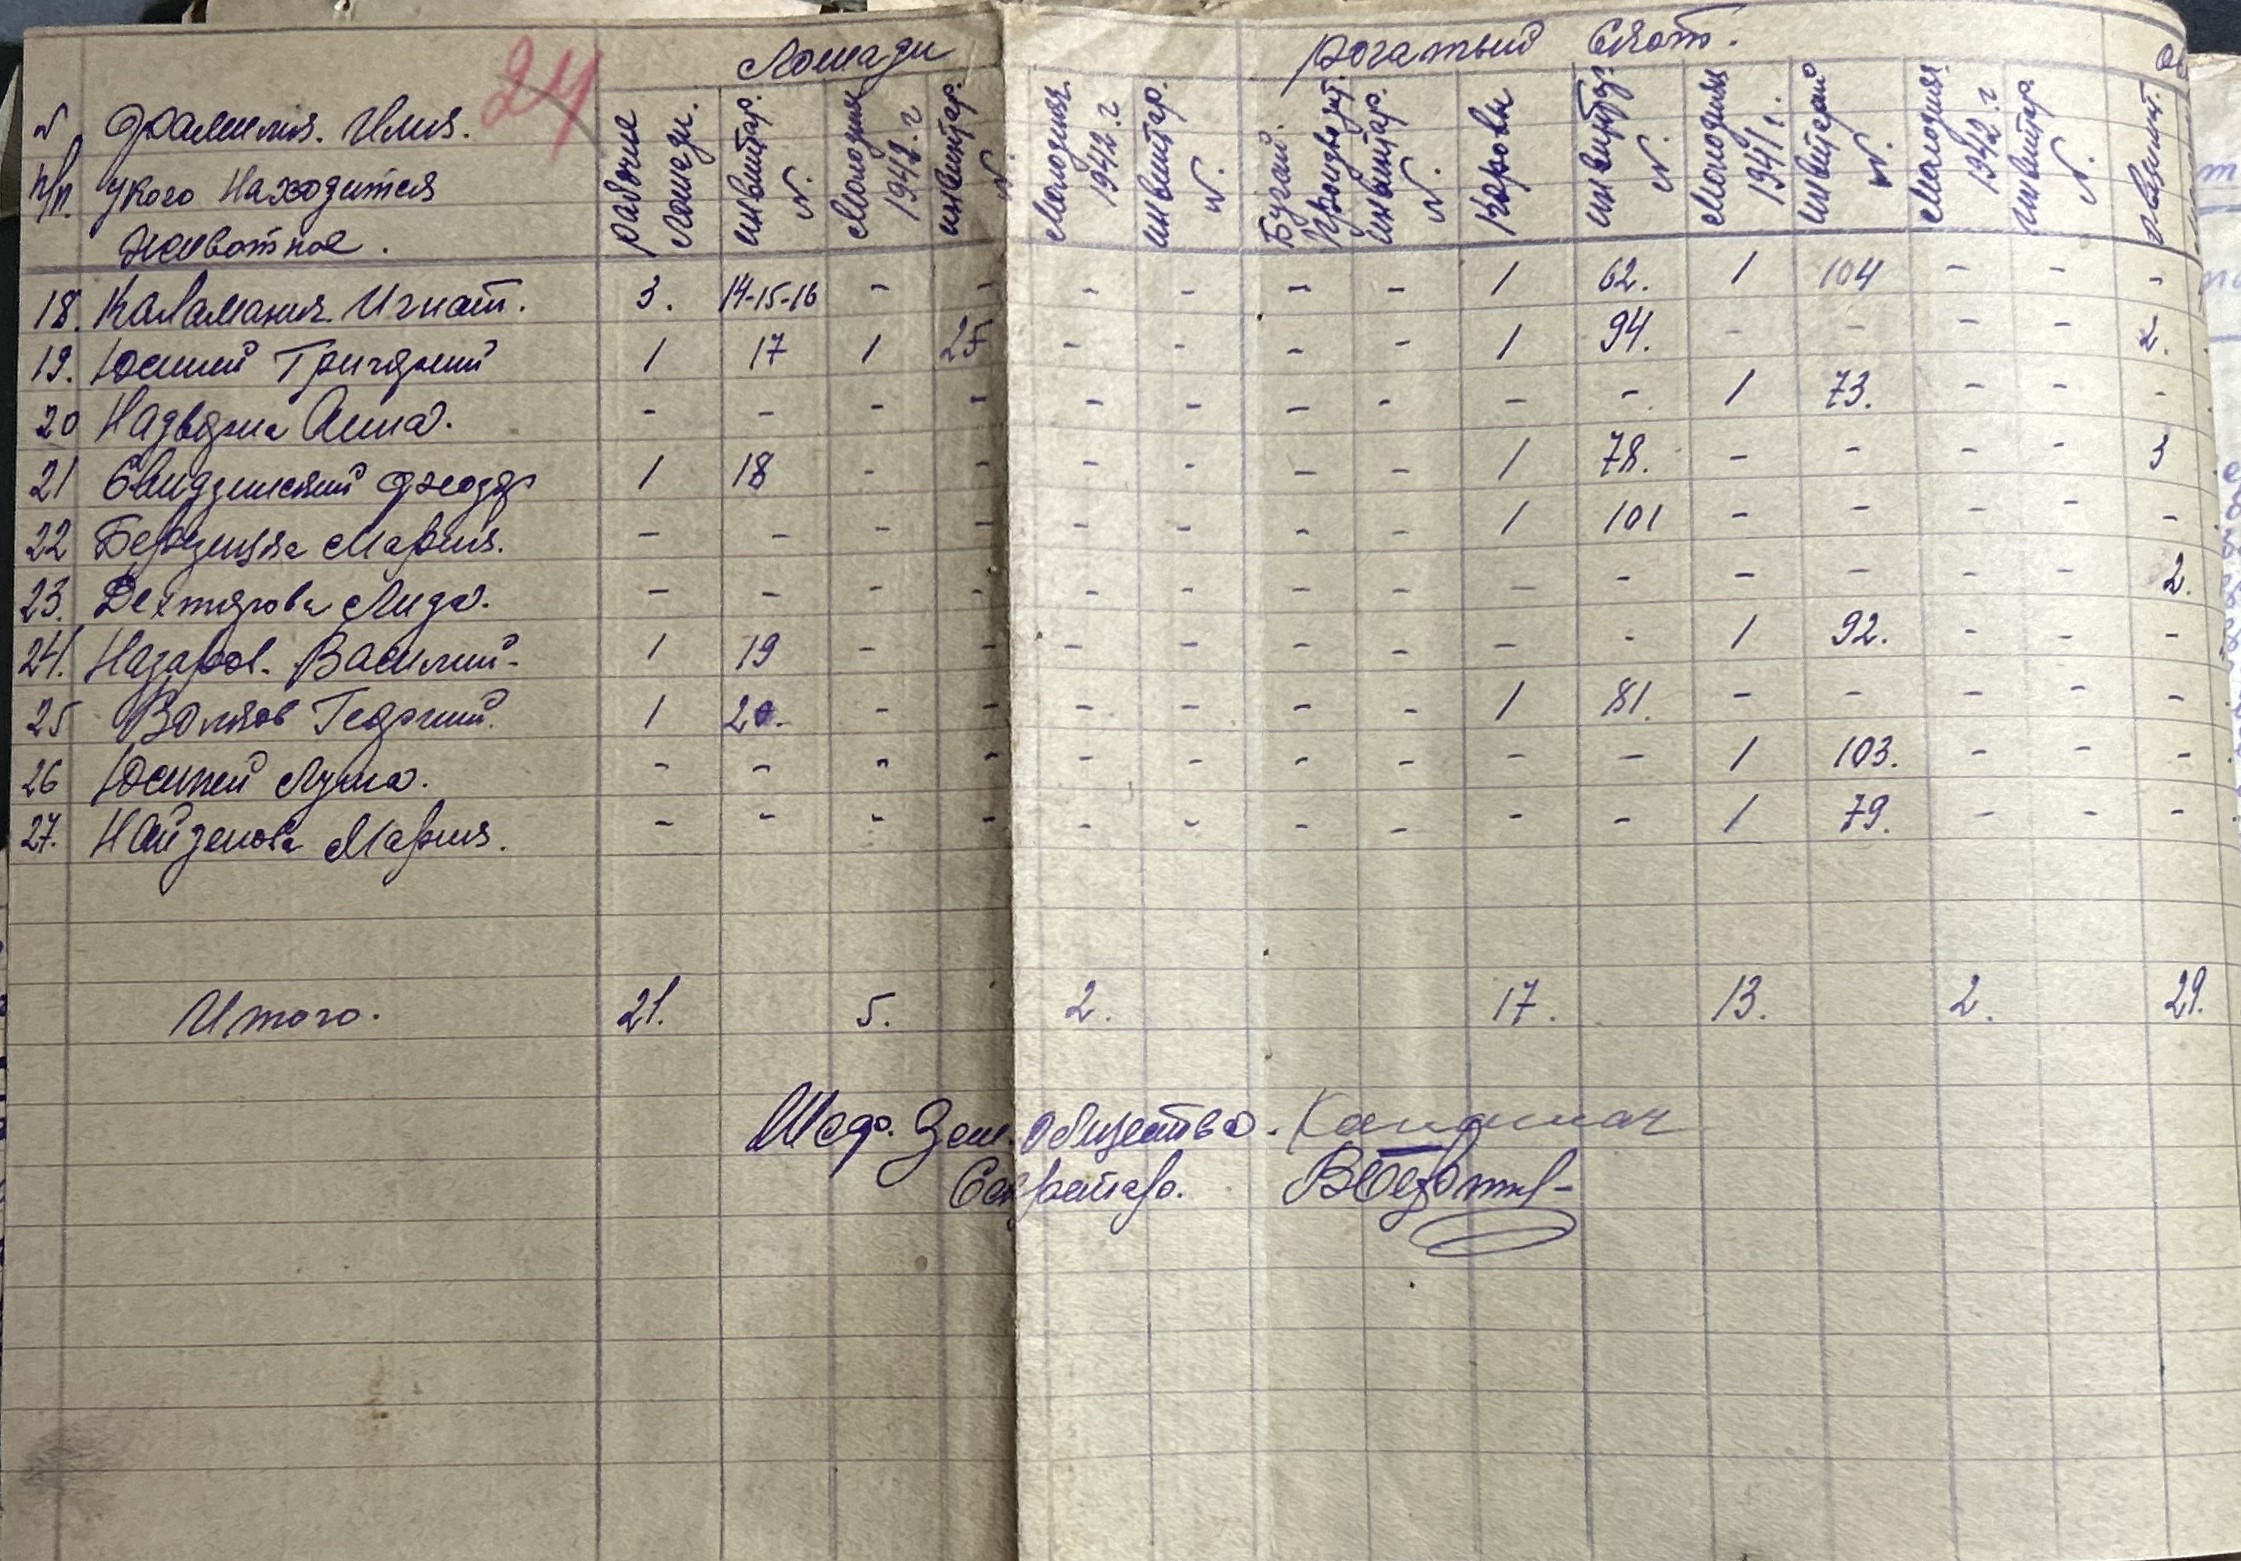 24
Лошади рогатый Скот. Ов
№ п/п. Фамилия. Имя. укого Находится животное. рабочие лошади. инвентар. № Молодняк 1942. г инвентар. № Молодняк. 1942. г инвентар. № Бугай. Производит. инвентар. № Коровы инвентар № Молодняк 1941 г. инвентарий № Молодняк. 1942. г инвентар. №
18. Каламаник Игнат. 3. 14-15-16 - - - - - - 1 62. 1 104 - - -
19. Юсипей Григорий 1 17 1 25 - - - - 1 94. - - - - 2.
20 Надворна Анна. - - - - - - - - - - 1 73. - - -
21 1 18 - - - - - - 1 78. - - - - 3
22 Мария. - - - - - - - - 1 101 - - - - -
23. Дехтярова Лида. - - - - - - - - - - - - - - 2.
24. Назаров. Василий - 1 19 - - - - - - - - 1 92. - - -
25 Волков Георгий. 1 20. - - - - - - 1 81. - - - - -
26 Юсипей Луша. - - - - - - - - - - 1 103. - - -
27. Найденова Мария. - - - - - - - - - - 1 79. - - -
Итого. 21. 5. 2. 17. 13. 2. 29.
Шеф. Зем. общества.
Секретарь.